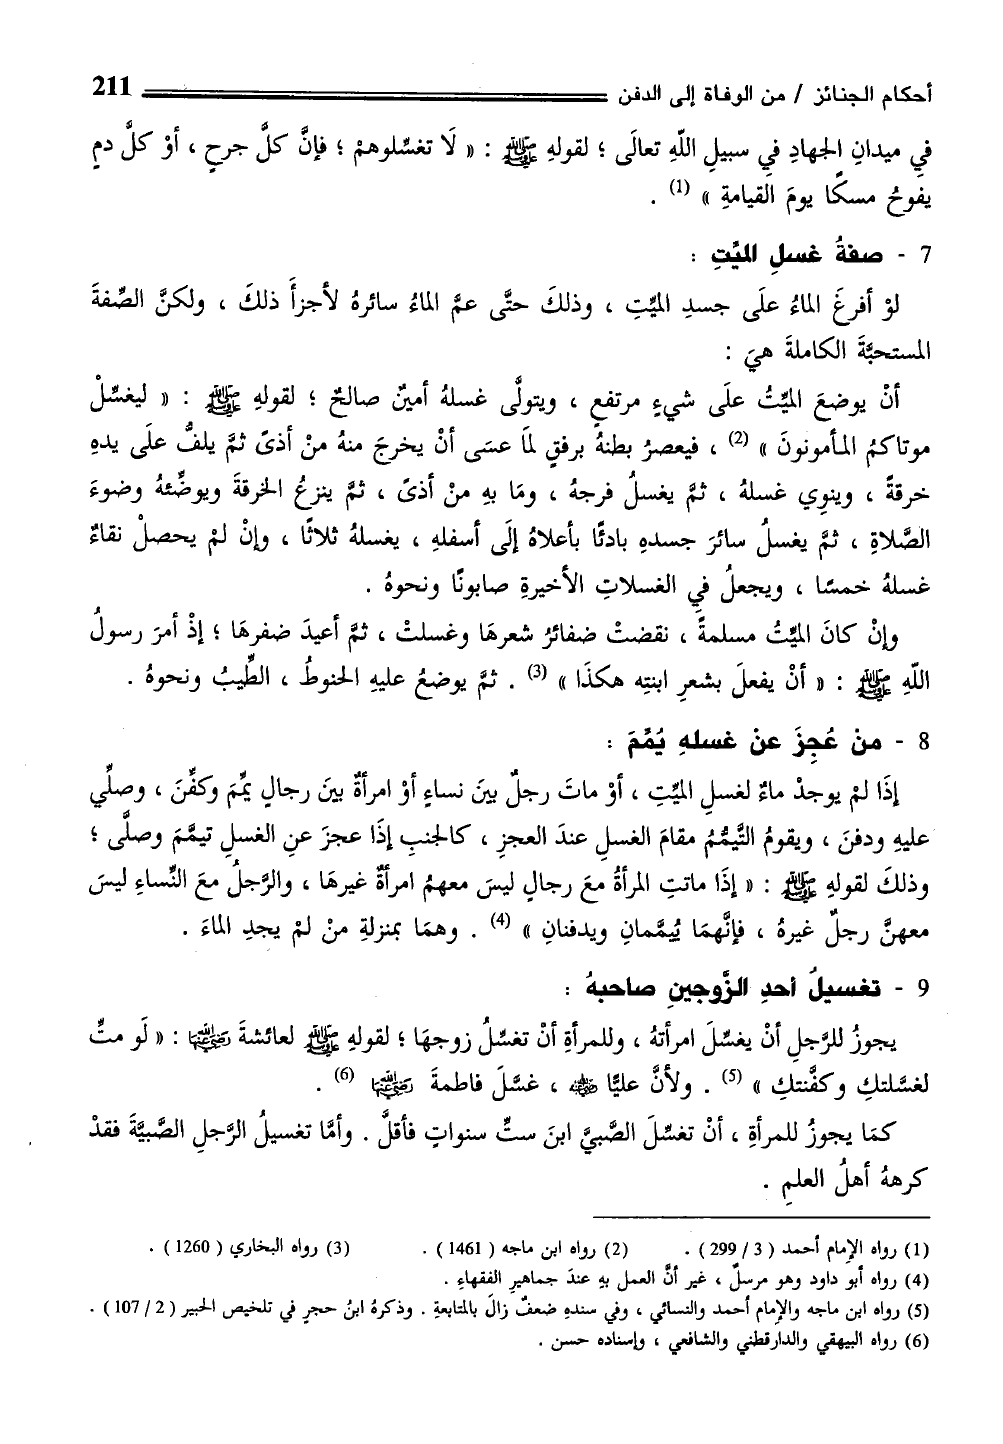 أحكام الجنائز / من الوفاة إلى الدفن 211
في ميدانِ الجهادِ في سبيلِ اللّهِ تعالَى ؛ لقولهِ ﷺ : « لَا تغسِّلوهمْ ؛ فإنَّ كلَّ جرحٍ ، أوْ كلَّ دمٍ
يفوحُ مسكًا يومَ القيامةِ » (1) .
7 - صفةُ غسلِ الميِّتِ :
لوْ أفرغَ الماءُ علَى جسدِ الميِّتِ ، وذلكَ حتَّى عمَّ الماءُ سائرهُ لأجزأَ ذلكَ ، ولكنَّ الصِّفةَ
المستحبَّةَ الكاملةَ هيَ :
أنْ يوضعَ الميِّتُ علَى شيءٍ مرتفعٍ ، ويتولَّى غسلهُ أمينٌ صالحٌ ؛ لقولهِ ﷺ : « ليغسِّلْ
موتاكمُ المأمونونَ » (2) ، فيعصرُ بطنهُ برفقٍ لمَا عسَى أنْ يخرجَ منهُ منْ أذىً ثمَّ يلفُّ علَى يدهِ
خرقةً ، وينوِي غسلهُ ، ثمَّ يغسلُ فرجهُ ، ومَا بهِ منْ أذىً ، ثمَّ ينزعُ الخرقةَ ويوضِّئهُ وضوءَ
الصَّلاةِ ، ثمَّ يغسلُ سائرَ جسدهِ بادئًا بأعلاهُ إلَى أسفلهِ ، يغسلهُ ثلاثًا ، وإنْ لمْ يحصلْ نقاءٌ
غسلهُ خمسًا ، ويجعلُ في الغسلاتِ الأخيرةِ صابونًا ونحوهُ .
وإنْ كانَ الميِّتُ مسلمةً ، نقضتْ ضفائرُ شعرهَا وغسلتْ ، ثمَّ أعيدَ ضفرهَا ؛ إذْ أمرَ رسولُ
اللّهِ ﷺ : « أنْ يفعلَ بشعرِ ابنتِه هكذَا » (3) . ثمَّ يوضعُ عليهِ الحنوطُ ، الطِّيبُ ونحوهُ .
8 - منْ عُجِزَ عنْ غسلهِ يُمِّمَ :
إذَا لمْ يوجدْ ماءٌ لغسلِ الميِّتِ ، أوْ ماتَ رجلٌ بينَ نساءٍ أوْ امرأةٌ بينَ رجالٍ يمِّمَ وكفِّنَ ، وصلِّي
عليهِ ودفنَ ، ويقومُ التَّيمُّمُ مقامَ الغسلِ عندَ العجزِ ، كالجنبِ إذَا عجزَ عنِ الغسلِ تيمَّمَ وصلَّى ؛
وذلكَ لقولهِ ﷺ : « إذَا ماتتِ المرأةُ معَ رجالٍ ليسَ معهمُ امرأةٌ غيرهَا ، والرَّجلُ معَ النِّساءِ ليسَ
معهنَّ رجلٌ غيرهُ ، فإنَّهمَا يُيمَّمانِ ويدفنانِ » (4) . وهمَا بمنزلةِ منْ لمْ يجدِ الماءَ .
9 - تغسيلُ أحدِ الزَّوجينِ صاحبهُ :
يجوزُ للرَّجلِ أنْ يغسِّلَ امرأتهُ ، وللمرأةِ أنْ تغسِّلُ زوجهَا ؛ لقولهِ ﷺ لعائشةَ رضي الله عنها : « لَو متِّ
لغسَّلتكِ وكفَّنتكِ » (5) . ولأنَّ عليًّا رضي الله عنه ، غسَّلَ فاطمةَ رضي الله عنها (6) .
كمَا يجوزُ للمرأةِ ، أنْ تغسِّلَ الصَّبيَّ ابنَ ستِّ سنواتٍ فأقلَّ . وأمَّا تغسيلُ الرَّجلِ الصَّبيَّةَ فقدْ
كرههُ أهلُ العلمِ .
(1) رواه الإمام أحمد ( 3 / 299 ) . (2) رواه ابن ماجه ( 1461 ) . (3) رواه البخاري ( 1260 ) .
(4) رواه أبو داود وهو مرسلٌ ، غير أنَّ العمل بهِ عندَ جماهيرِ الفقهاءِ .
(5) رواه ابن ماجه والإمام أحمد والنسائي ، وفي سندهِ ضعفٌ زالَ بالمتابعةِ . وذكرهُ ابنُ حجرٍ في تلخيص الحبير ( 2 / 107 ) .
(6) رواه البيهقي والدارقطني والشافعي ، وإسناده حسن .